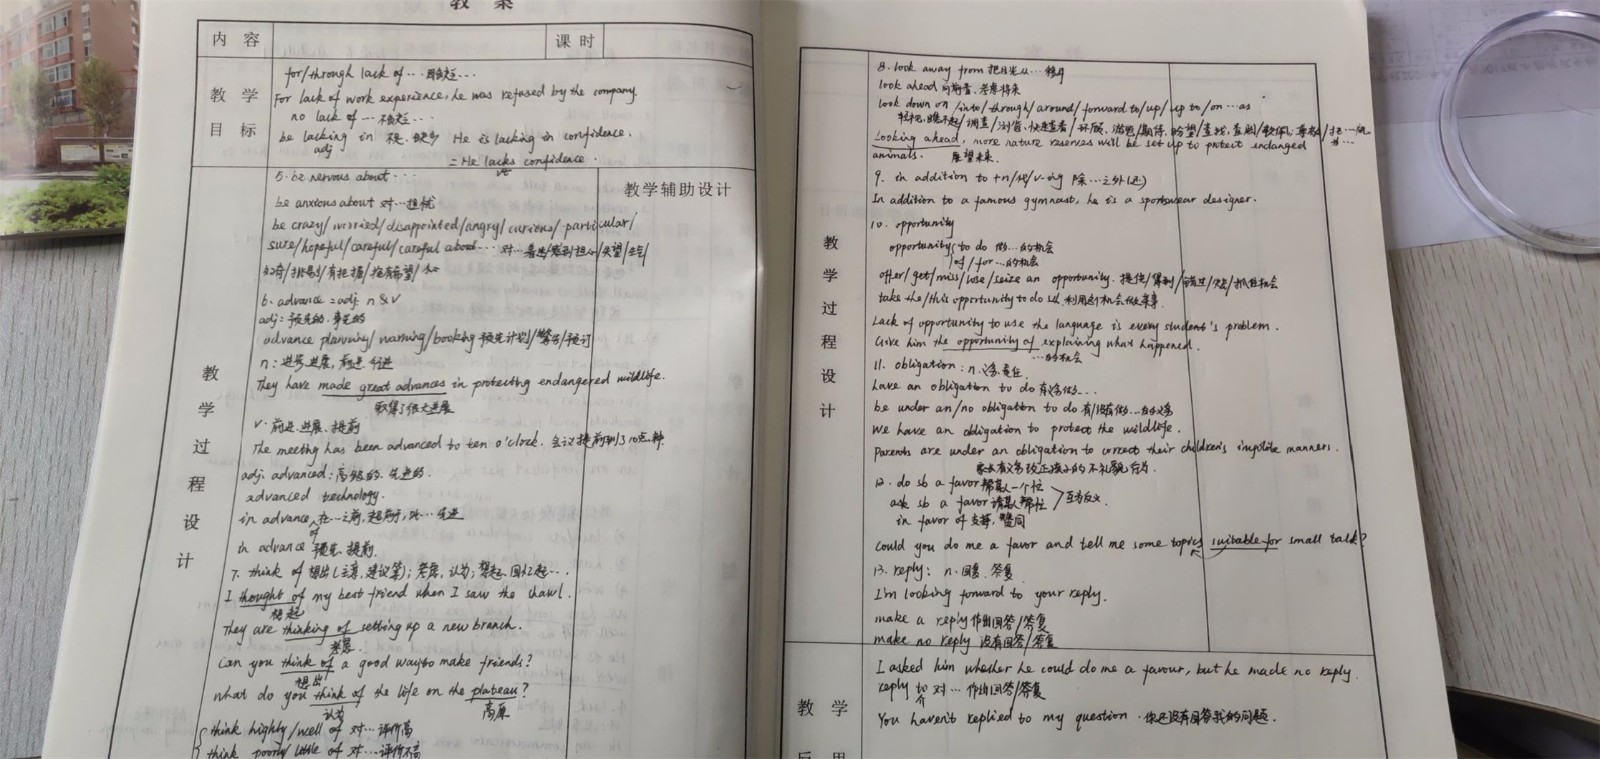 教 案
内 容
课 时
教 学
目 标
for/through lack of … 因缺乏…
For lack of work experience, he was refused by the company.
no lack of … 不缺乏…
be lacking in 不足、缺少 He is lacking in confidence.
adj
= He lacks confidence.
vt
教学辅助设计
教 学 过 程 设 计
5. be nervous about …
be anxious about 对…担忧
be crazy/worried/disappointed/angry/curious/particular/
sure/hopeful/careful/careful about … 对…着迷/感到担心/失望/生气/
好奇/挑剔/有把握/抱有希望/
6. advance = adj. n & v
adj: 预先的、事先的
advance planning/warning/booking 预先计划/警告/预订
n: 进步,进展,前进
They have made great advances in protecting endangered wildlife.
取得了很大进展
v. 前进、进展、提前
The meeting has been advanced to ten o'clock. 会议提前到了10点钟.
adj. advanced: 高级的、先进的.
advanced technology.
in advance of 在…之前,超前于,比…先进
in advance 预先、提前
7. think of 想出(主意,建议等); 考虑,认为; 想起、回忆起…
I thought of my best friend when I saw the shawl.
想起
They are thinking of setting up a new branch.
考虑
Can you think of a good way to make friends?
想出
What do you think of the life on the plateau?
认为 高原
think highly/well of 对…评价高
think poorly/little of 对…评价不高
教 学 过 程 设 计
8. look away from 把目光从…移开
look ahead 向前看、考虑将来
look down on/into/through/around/forward to/up/up to/on…as
瞧不起/调查/浏览、快速查看/环顾、游览/期待、盼望/查找、查阅/敬佩、尊敬/把…
Looking ahead, more nature reserves will be set up to protect endangered
animals. 展望未来.
9. in addition to +n/代/v-ing 除…之外(还)
In addition to a famous gymnast, he is a sportswear designer.
10. opportunity
opportunity to do 做…的机会
/of/for…的机会
offer/get/miss/lose/seize an opportunity. 提供/得到/错过/失去/抓住机会
take the/this opportunity to do sth 利用这个机会做某事.
Lack of opportunity to use the language is every student's problem.
Give him the opportunity of explaining what happened.
…的机会
11. obligation: n. 义务、责任
have an obligation to do 有义务做…
be under an/no obligation to do 有/没有做…的义务
We have an obligation to protect the wildlife.
Parents are under an obligation to correct their children's impolite manners.
家长有义务改正孩子的不礼貌行为.
12. do sb a favor 帮某人一个忙
ask sb a favor 请某人帮忙 互为反义
in favor of 支持,赞同
Could you do me a favor and tell me some topics suitable for small talk?
13. reply: n. 回复、答复
I'm looking forward to your reply.
make a reply 作出回答/答复
make no reply 没有回答/答复
教 学
反 思
I asked him whether he could do me a favour, but he made no reply.
reply to 对…作出回答/答复
介
You haven't replied to my question. 你还没有回答我的问题.